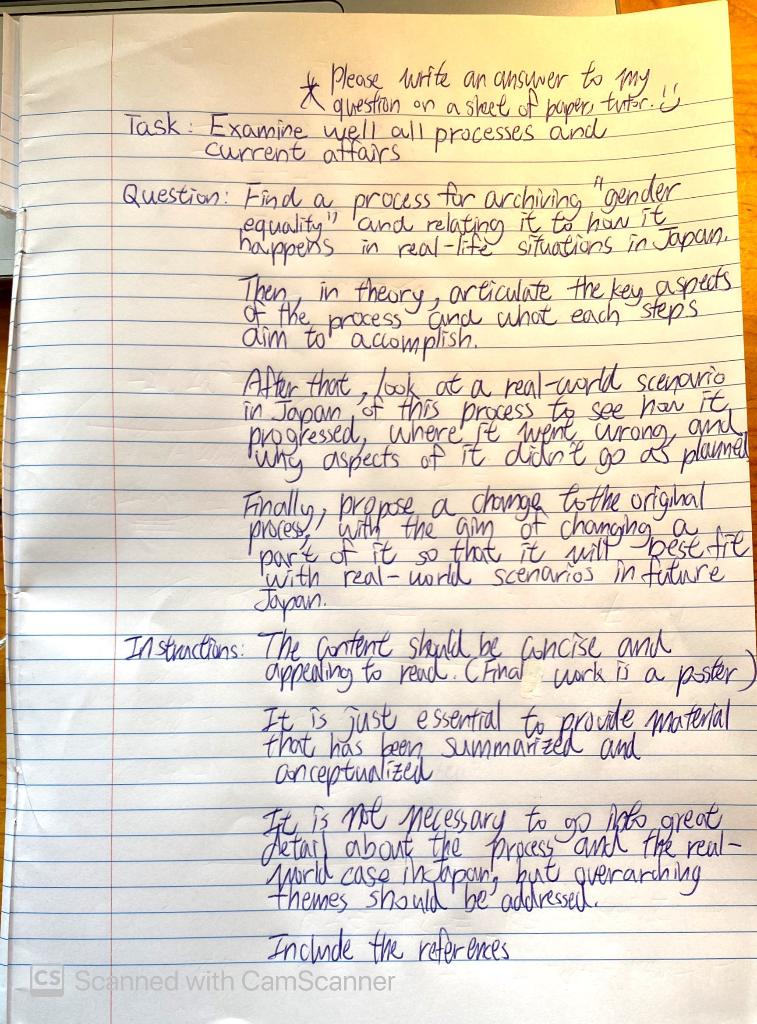 * Please write an answer to my
question on a sheet of paper, tutor. :)
Task: Examine well all processes and
current affairs
Question: Find a process for archiving "gender
equality" and relating it to how it
happens in real-life situations in Japan.
Then, in theory, articulate the key aspects
of the process and what each steps
aim to accomplish.
After that, look at a real-world scenario
in Japan of this process to see how it
progressed, where it went wrong, and
why aspects of it didn't go as planned
Finally, propose a change to the original
process, with the aim of changing a
part of it so that it will best fit
with real-world scenarios in future
Japan.
Instructions: The content should be concise and
appealing to read. (Final work is a poster)
It is just essential to provide material
that has been summarized and
conceptualized
It is not necessary to go into great
detail about the process and the real-
world case in Japan, but overarching
themes should be addressed.
Include the references
CS Scanned with CamScanner